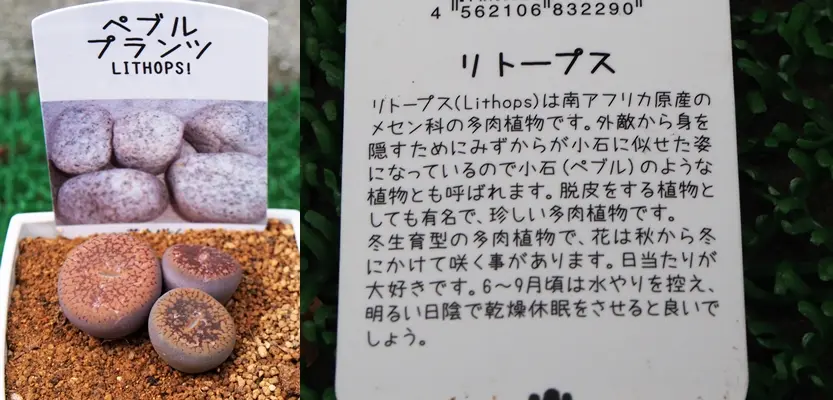 ペブル
プランツ
LITHOPS!
4 562106 832290
リトープス
リトープス(Lithops)は南アフリカ原産の
メセン科の多肉植物です。外敵から身を
隠すためにみずからが小石に似せた姿
になっているので小石(ペブル)のような
植物とも呼ばれます。脱皮をする植物と
しても有名で、珍しい多肉植物です。
冬生育型の多肉植物で、花は秋から冬
にかけて咲く事があります。日当たりが
大好きです。6〜9月頃は水やりを控え、
明るい日陰で乾燥休眠をさせると良いで
しょう。